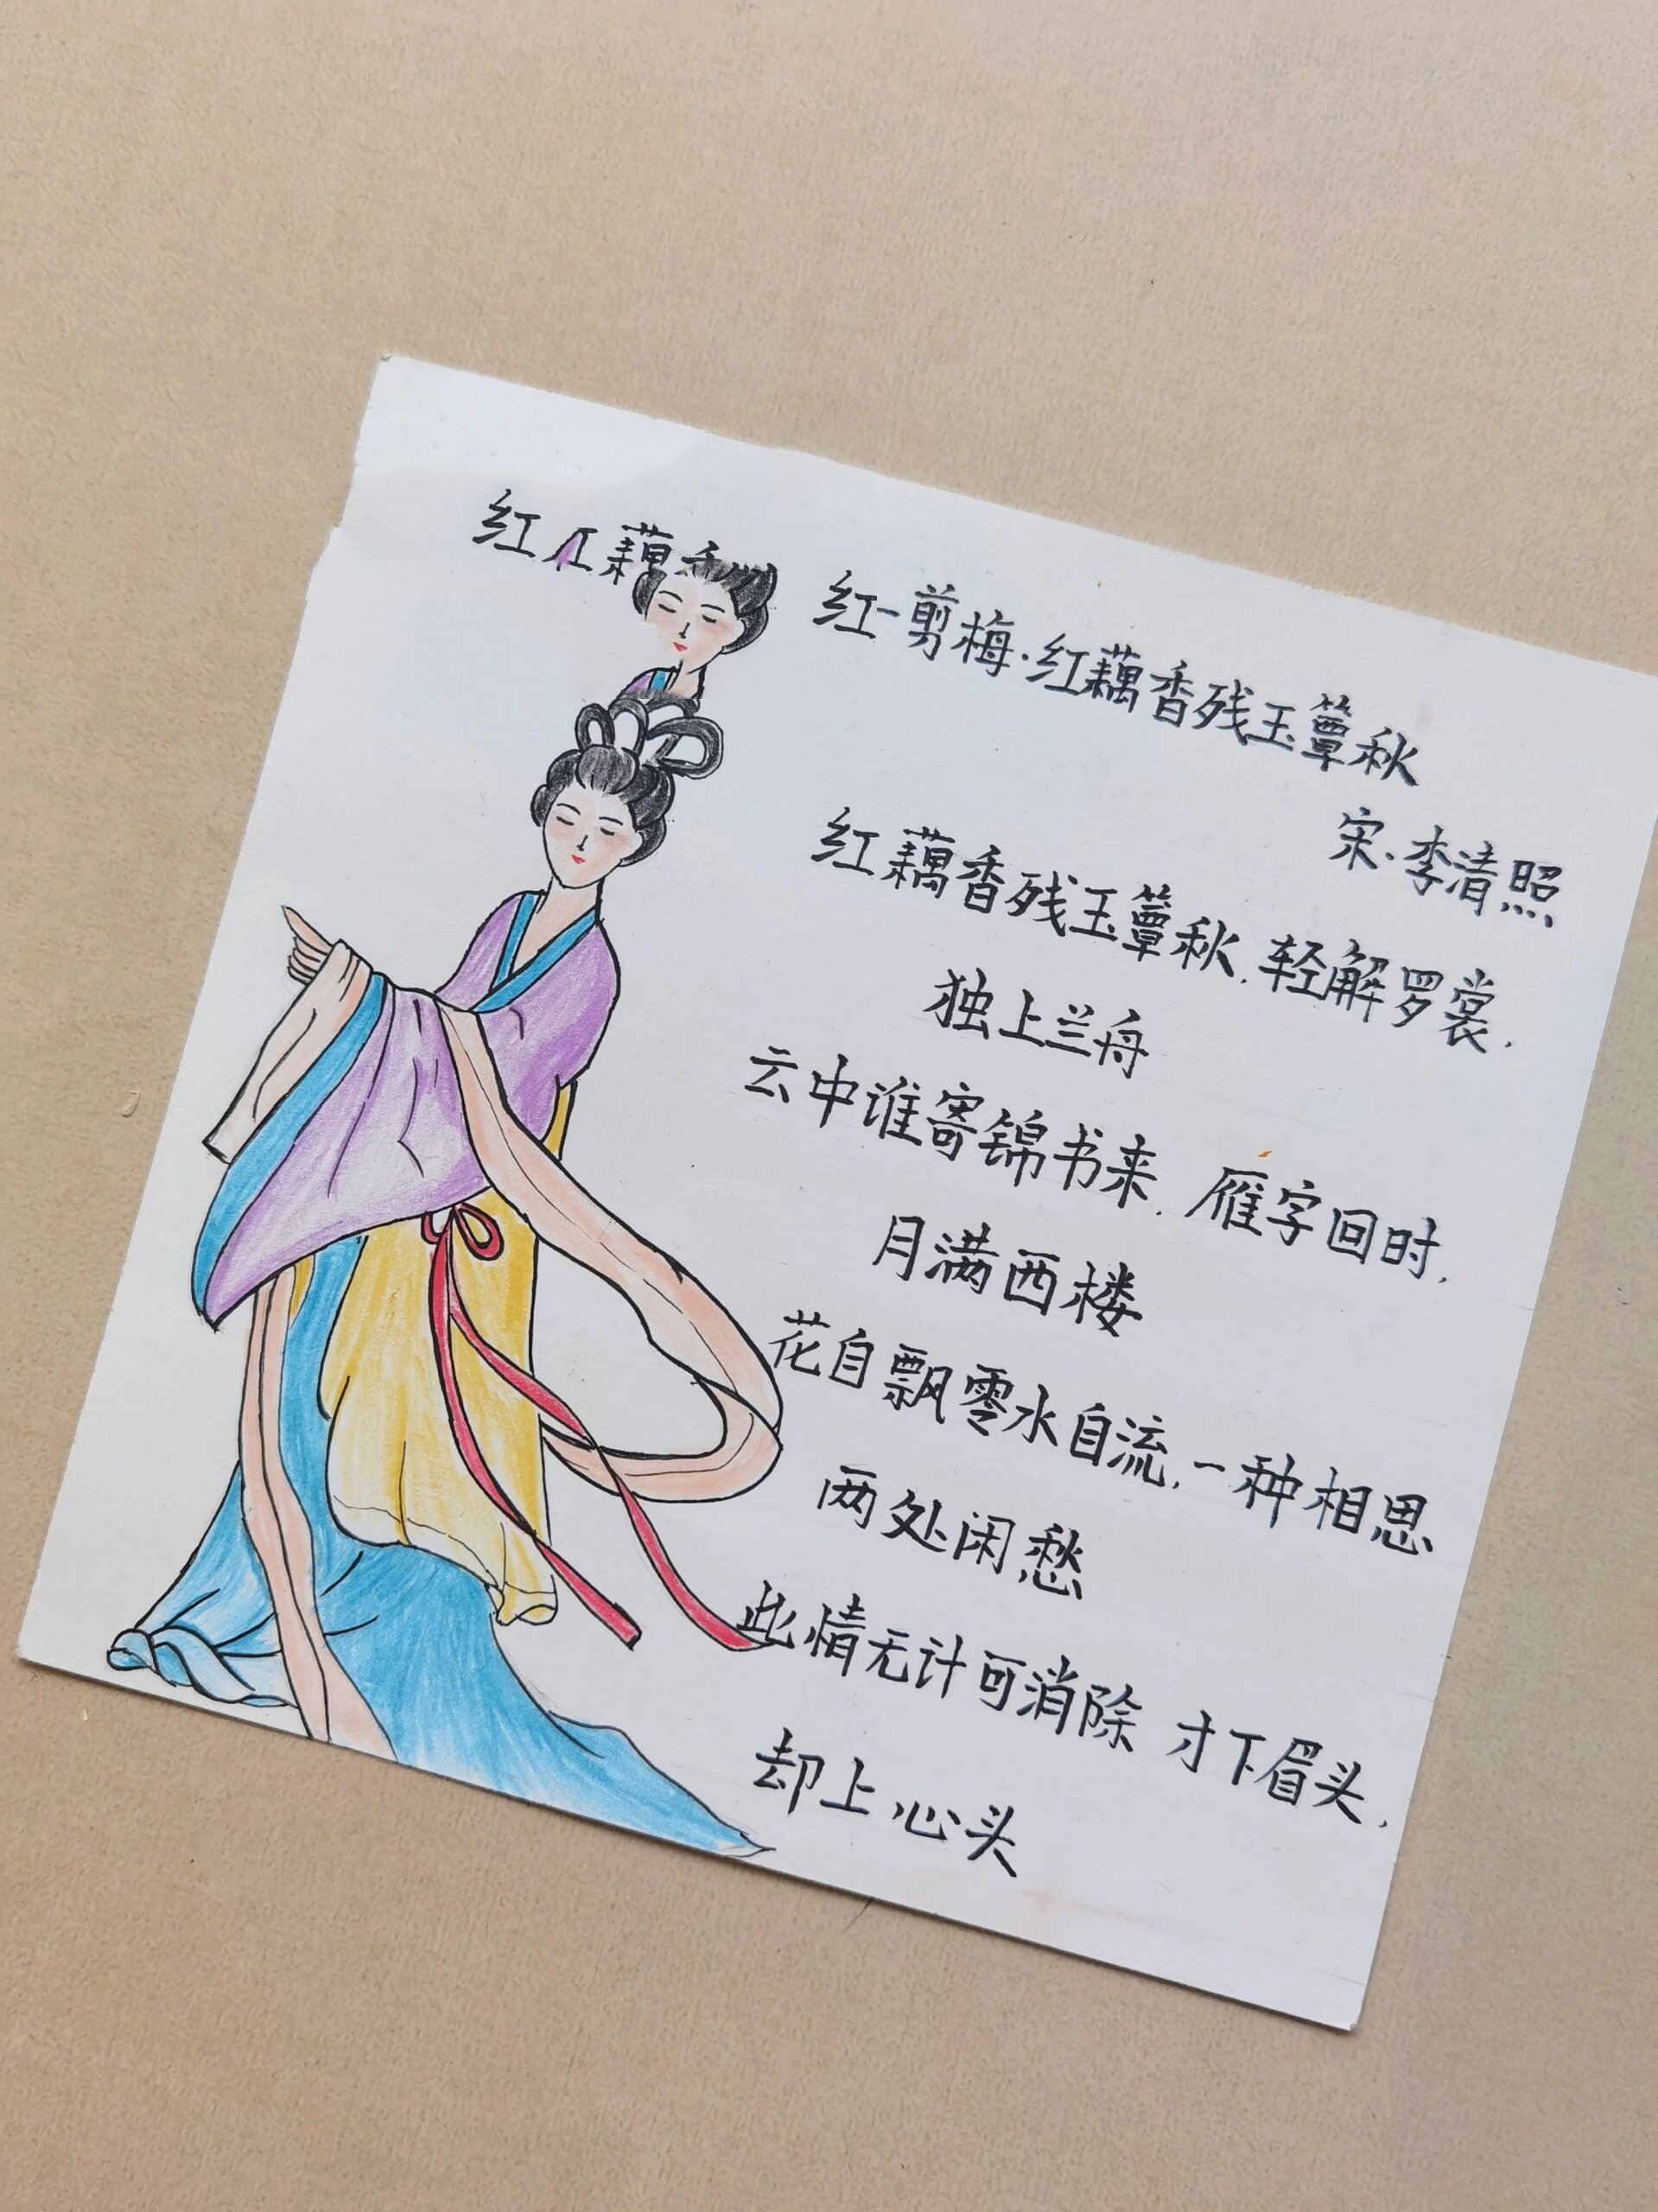 红红藕香
红一剪梅·红藕香残玉簟秋
宋·李清照
红藕香残玉簟秋.轻解罗裳.
独上兰舟
云中谁寄锦书来.雁字回时.
月满西楼
花自飘零水自流.一种相思
两处闲愁
此情无计可消除 才下眉头.
却上心头